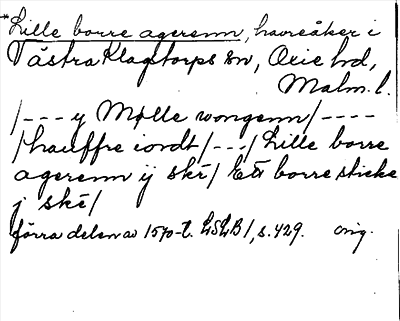 *Lille borre agerenn, havreåker i
Västra Klagstorps sn, Oxie hd,
Malm. l.
/--- y Mølle wongenn/----
/hauffre iordt/---/ Lille borre
agerenn ij skr/ Ett borre sticke
j skē/
förra delen av 1570-t. LSLB I, s. 429. orig.